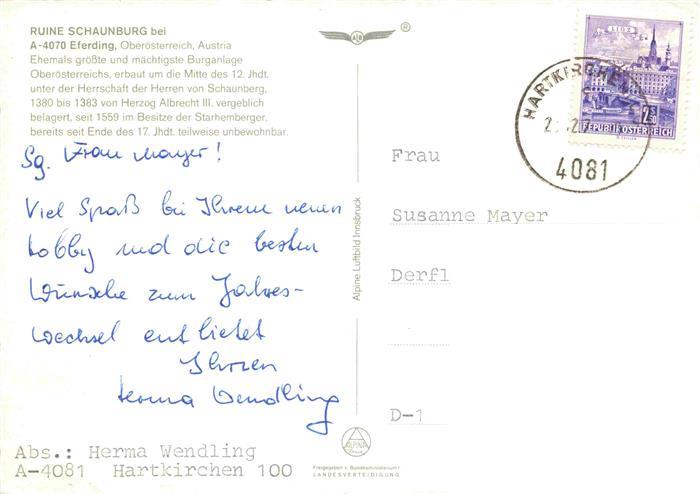 RUINE SCHAUNBURG bei
A-4070 Eferding, Oberösterreich, Austria
Ehemals größte und mächtigste Burganlage
Oberösterreichs, erbaut um die Mitte des 12. Jhdt.
unter der Herrschaft der Herren von Schaunberg,
1380 bis 1383 von Herzog Albrecht III. vergeblich
belagert, seit 1559 im Besitze der Starhemberger,
bereits seit Ende des 17. Jhdt. teilweise unbewohnbar.
Sg. Frau Mayer!
Viel Spaß bei Ihrem neuen
Hobby und die besten
Wünsche zum Jahres-
wechsel entbietet
Ihnen
Herma Wendling
Abs.: Herma Wendling
A-4081 Hartkirchen 100
Alpine Luftbild Innsbruck
ALPINE
Freigegeben v. Bundesministerium f.
LANDESVERTEIDIGUNG
®
LINZ
2S50
REPUBLIK ÖSTERREICH
HARTKIRCHEN
4081
Frau
Susanne Mayer
Derfl
D-1